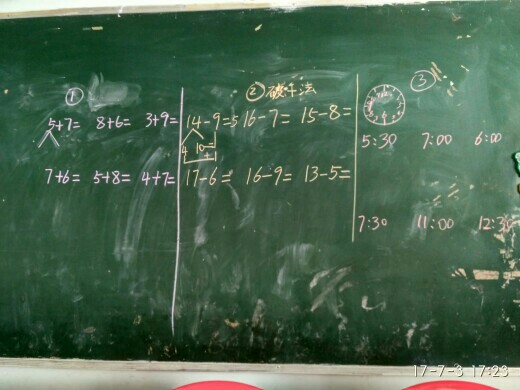 ①
5+7= 8+6= 3+9=
7+6= 5+8= 4+7=
② 破十法
14-9=5 16-7= 15-8=
4 10
17-6= 16-9= 13-5=
③
5:30 7:00 6:00
7:30 11:00 12:30
17-7-3 17:23